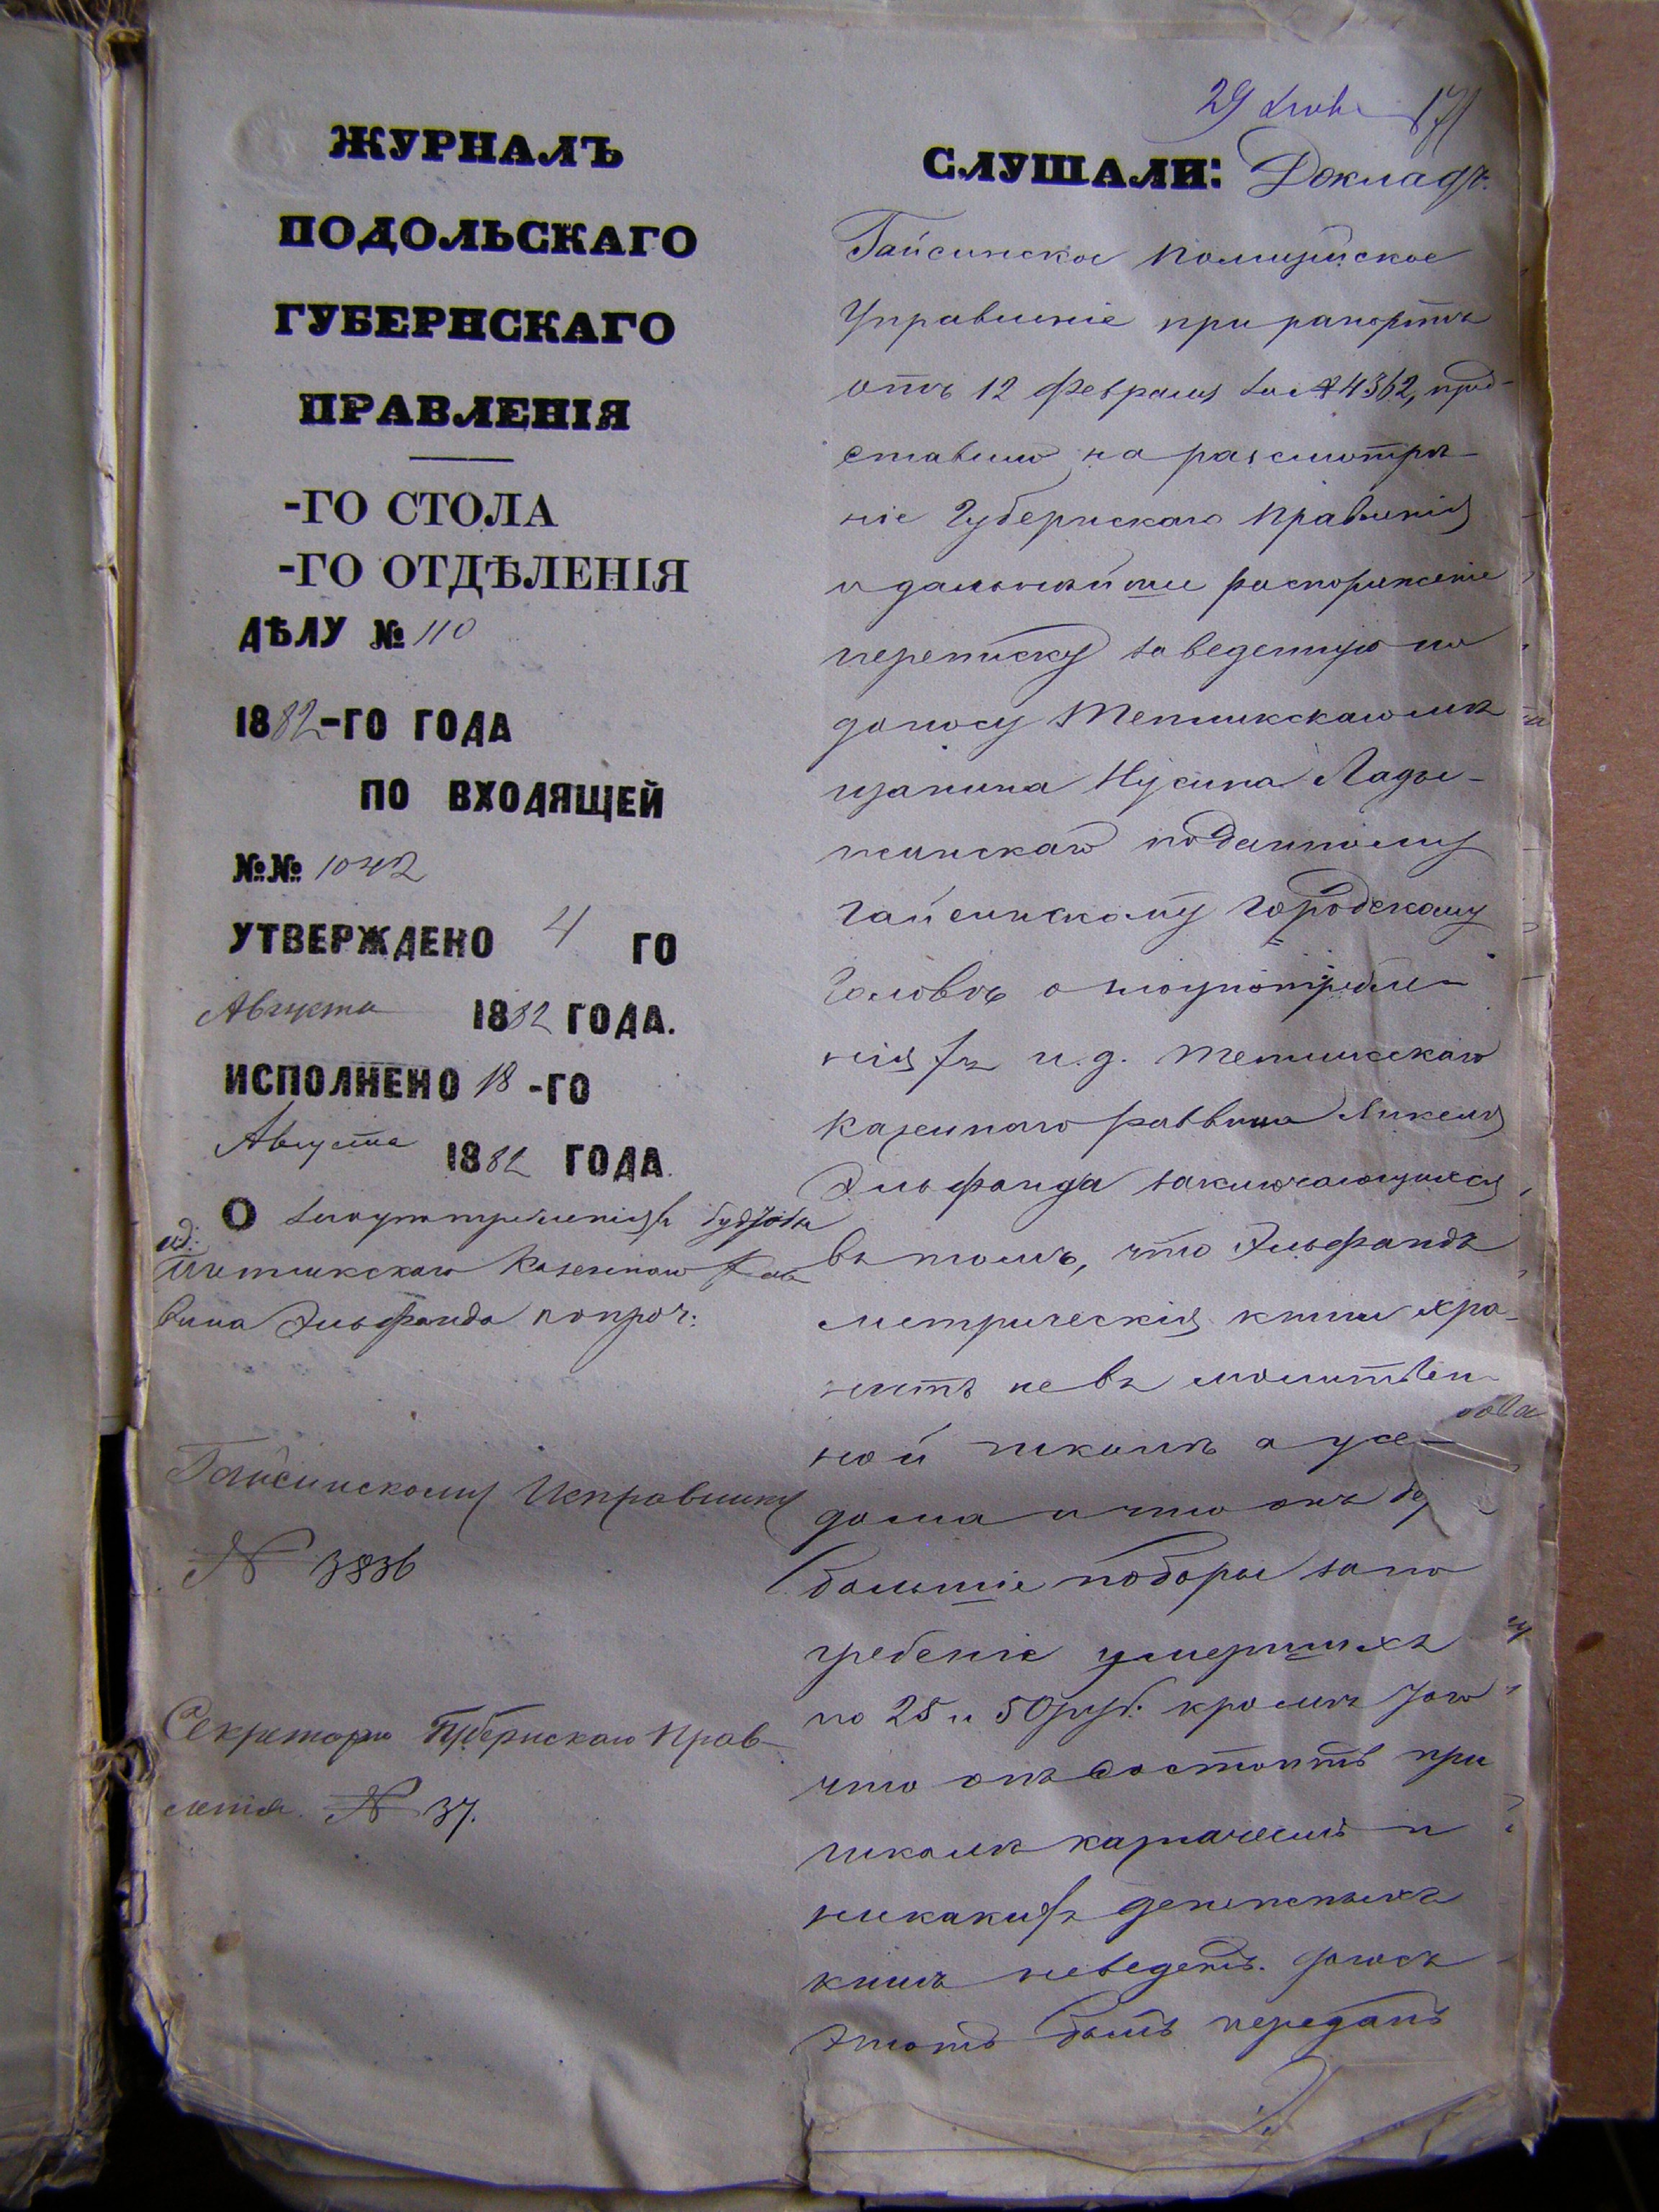 ЖУРНАЛЪ
ПОДОЛЬСКАГО
ГУБЕРНСКАГО
ПРАВЛЕНІЯ
-ГО СТОЛА
-ГО ОТДѢЛЕНІЯ
ДѢЛУ № 110
1882-ГО ГОДА
ПО ВХОДЯЩЕЙ
№№ 1042
УТВЕРЖДЕНО 4 ГО
Августа 1882 ГОДА.
ИСПОЛНЕНО 18-ГО
Августа 1882 ГОДА.
О злоупотребленіяхъ будтобы
ид:
Тепликскаго Казеннаго Рав
вина Эльфанда и проч:
Гайсинскому Исправнику
№ 3836
Секретарю Губернскаго Прав-
ленія № 37.
29
СЛУШАЛИ: Докладъ.
Гайсинское Полицейское
Управленіе при рапортѣ
отъ 12 Февраля за № 4362, пред-
ставило на разсмотрѣ-
ніе Губернскаго Правленія
и дальнѣйшее распоряженіе
переписку заведенную по
доносу Тепликскаго мѣ
щанина Нусина Лады-
жинскаго поданному
Гайсинскому Городскому
Головѣ о злоупотребле-
ніяхъ и.д. Тепликскаго
Казеннаго раввина
Эльфанда заключающихся
въ томъ, что Эльфандъ
метрическія книги хра-
нитъ не въ молитвен-
ной школѣ а у се
дома и что онъ
большіе поборы за по
гребеніе умершихъ
по 25 и 50 руб. кромѣ того
что онъ состоитъ при
школѣ казначеемъ и
никакихъ денежныхъ
книгъ неведетъ. Доносъ
этотъ былъ переданъ